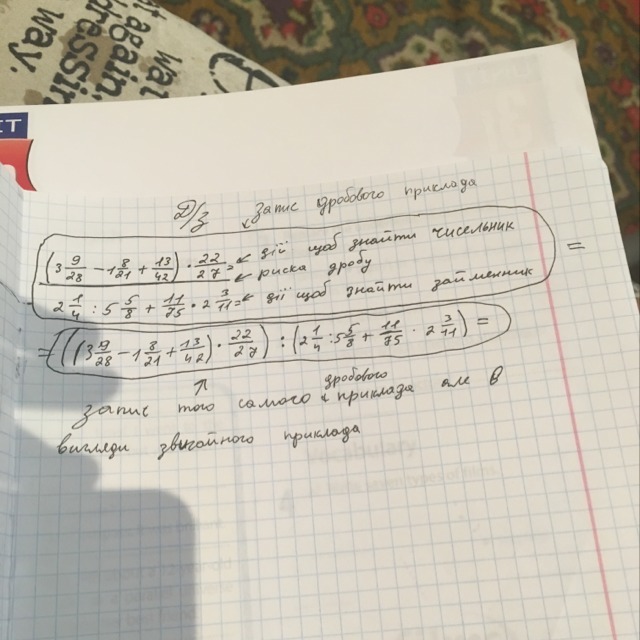 t again.
wat
dressin
way.
ET
Д/з
Запис дробового приклада
(3 9/28 - 1 8/21 + 13/42) · 22/27 = ← дії щоб знайти чисельник
← риска дробу
=
2 1/4 : 5 5/8 + 11/75 · 2 3/11 = ← дії щоб знайти займенник
= ((3 9/28 - 1 8/21 + 13/42) · 22/27) : (2 1/4 : 5 5/8 + 11/75 · 2 3/11) =
запис того самого дробового приклада але в
вигляди звичайного приклада